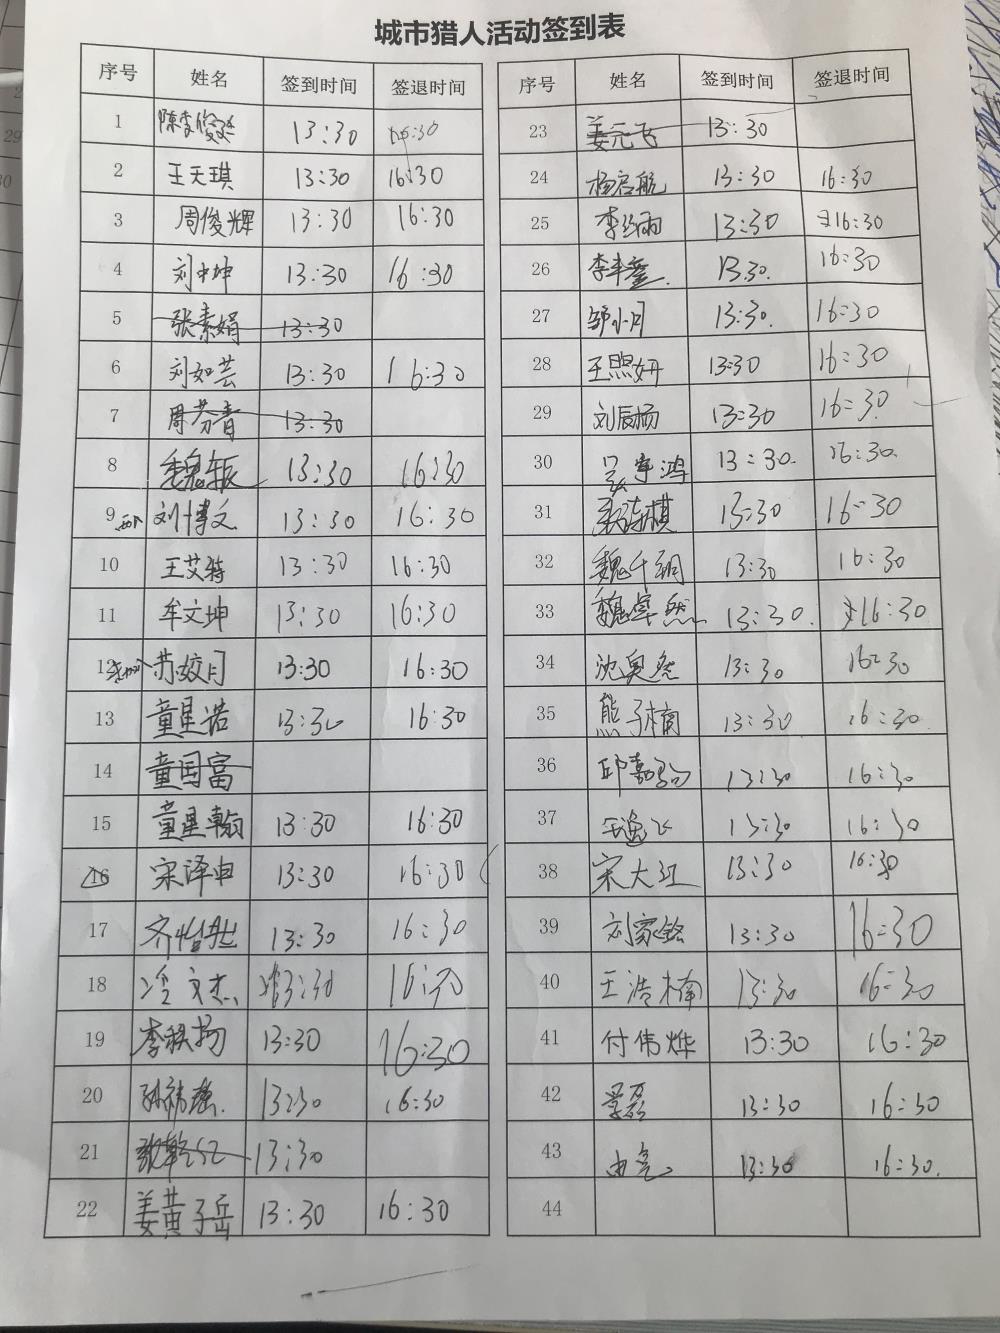 城市猎人活动签到表
序号 姓名 签到时间 签退时间
1 陈李俊 13:30 16:30
2 王天琪 13:30 16:30
3 周俊辉 13:30 16:30
4 刘中坤 13:30 16:30
5 张素娟 13:30
6 刘如芸 13:30 16:30
7 周芬青 13:30
8 魏振 13:30 16:30
9 刘博文 13:30 16:30
10 王艾特 13:30 16:30
11 牟文坤 13:30 16:30
12 苏姣月 13:30 16:30
13 童星诺 13:30 16:30
14 童国富
15 童星翰 13:30 16:30
16 宋泽申 13:30 16:30
17 齐怡 13:30 16:30
18 冷文杰 13:30 16:30
19 李秋扬 13:30 16:30
20 13:30 16:30
21 13:30
22 姜黄子岳 13:30 16:30
序号 姓名 签到时间 签退时间
23 姜元飞 13:30
24 杨启航 13:30 16:30
25 李雨 13:30 16:30
26 李丰 13.30. 16:30
27 邹小月 13:30. 16:30
28 王熙妍 13:30 16:30
29 刘辰扬 13:30 16:30
30 吴宇鸿 13:30. 16:30.
31 棋 13:30 16:30
32 魏千 13:30 16:30
33 魏卓然 13:30. 16:30
34 沈奥然 13:30 16:30
35 熊子楠 13:30 16:30
36 邱嘉 13:30 16:30
37 王逸飞 13:30 16:30
38 宋大江 13:30 16:30
39 刘家铭 13:30 16:30
40 王浩楠 13:30 16:30
41 付伟烨 13:30 16:30
42 磊 13:30 16:30
43 由亮 13:30 16:30.
44